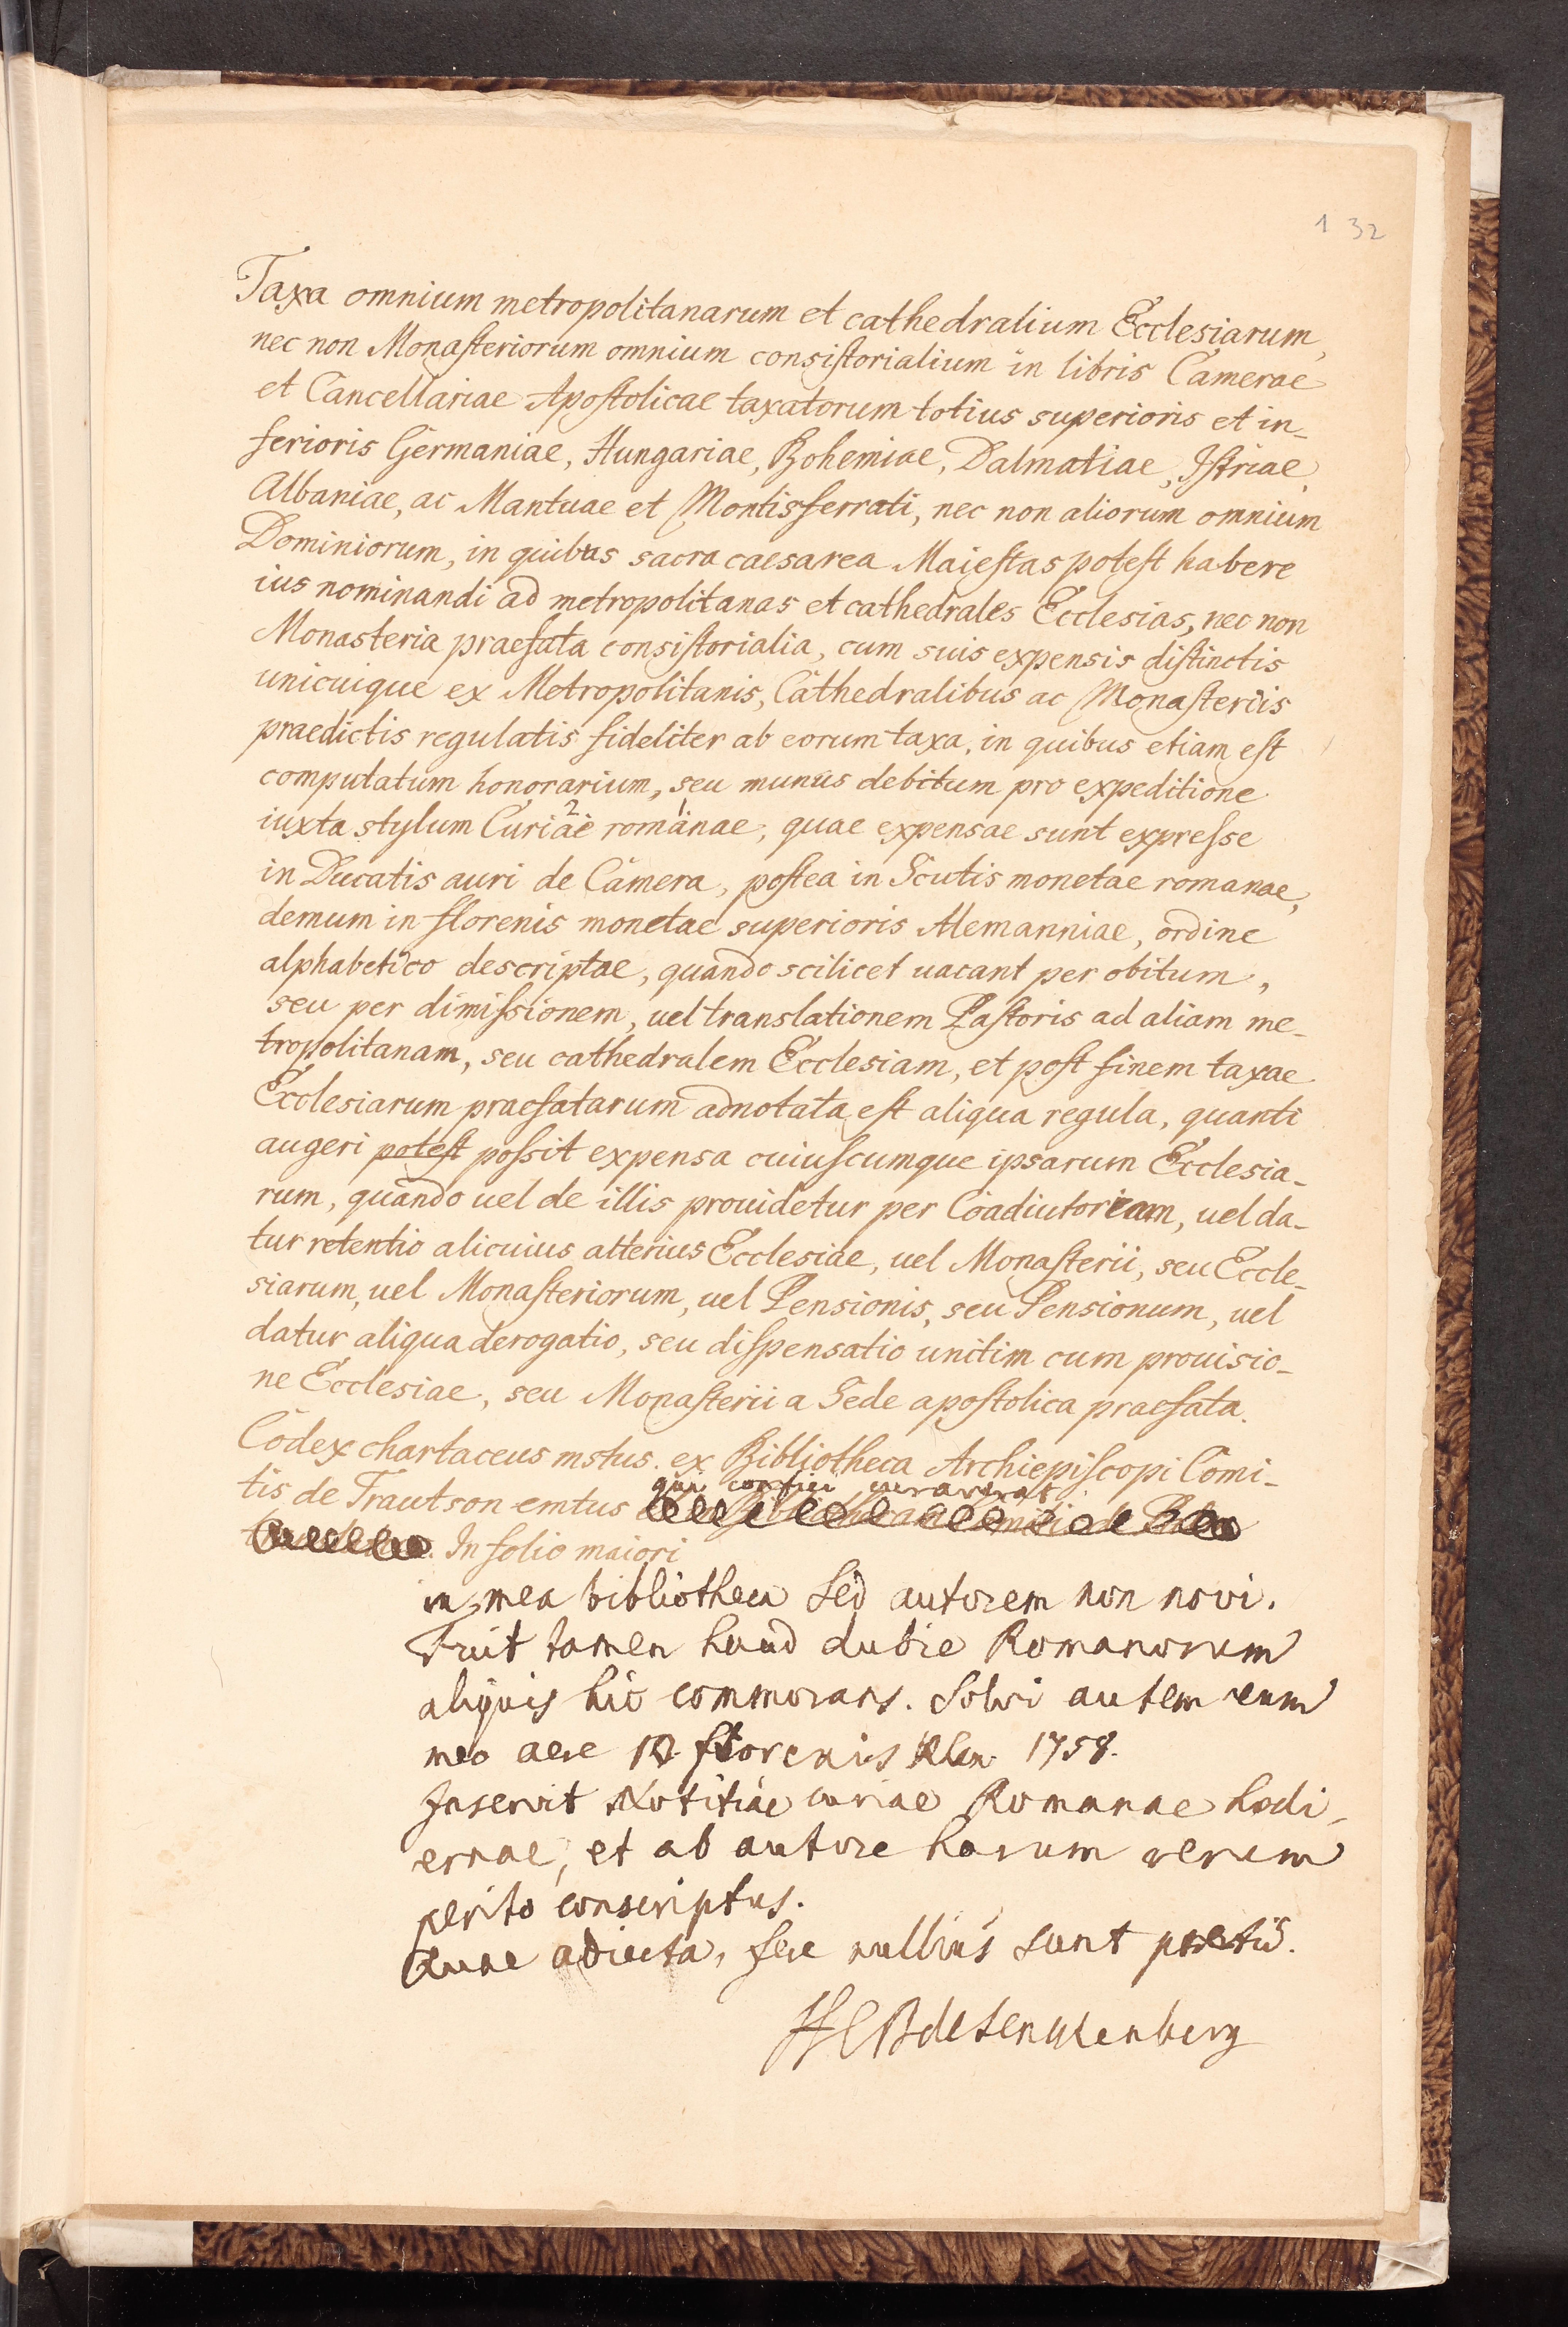 1 32
Taxa omnium metropolitanarum et cathedralium Ecclesiarum,
nec non Monasteriorum omnium consistorialium in libris Camerae
et Cancellariae Apostolicae taxatorum totius superioris et in-
ferioris Germaniae, Hungariae, Bohemiae, Dalmatiae, Istriae,
Albaniae, ac Mantuae et Montisferrati, nec non aliorum omnium
Dominiorum, in quibus sacra caesarea Maiestas potest habere
ius nominandi ad metropolitanas et cathedrales Ecclesias, nec non
Monasteria praefata consistorialia, cum suis expensis distinctis
unicuique ex Metropolitanis, Cathedralibus ac Monasteriis
praedictis regulatis fideliter ab eorum taxa, in quibus etiam est
computatum honorarium, seu munus debitum pro expeditione
iuxta stylum Curiae 2 romanae 1, quae expensae sunt expresse
in Ducatis auri de Camera, postea in Scutis monetae romanae,
demum in florenis monetae superioris Alemanniae, ordine
alphabetico descriptae, quando scilicet uacant per obitum,
seu per dimissionem, uel translationem Pastoris ad aliam me-
tropolitanam, seu cathedralem Ecclesiam, et post finem taxae
Ecclesiarum praefatarum adnotata est aliqua regula, quanti
augeri potest possit expensa cuiuscumque ipsarum Ecclesia-
rum, quando uel de illis prouidetur per Coadiutoriam, uel da-
tur retentio alicuius alterius Ecclesiae, uel Monasterii, seu Eccle-
siarum, uel Monasteriorum, uel Pensionis, seu Pensionum, uel
datur aliqua derogatio, seu dispensatio unitim cum prouisio-
ne Ecclesiae, seu Monasterii a Sede apostolica praefata.
Codex chartaceus mstus. ex Bibliotheca Archiepiscopi Comi-
qui confici curaverat
tis de Trautson emtus
In folio maiori
in mea bibliotheca sed autorem non novi.
Fuit tamen haud dubie Romanorum
aliquis hic commorans. Solvi autem eum
meo aere florenis Rhen. 1758.
Inservit Notitiae curiae Romanae hodi-
ernae, et ab autore harum rerum
perito conscriptus.
Quae adiecta, fere nullius sunt pretii.
HCB de Senckenberg